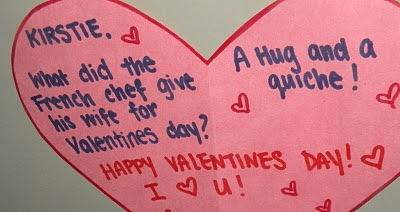 KIRSTIE,
What did the
French chef give
his wife for
Valentines day?
A Hug and a
quiche!
HAPPY VALENTINES DAY!
I ♡ U!